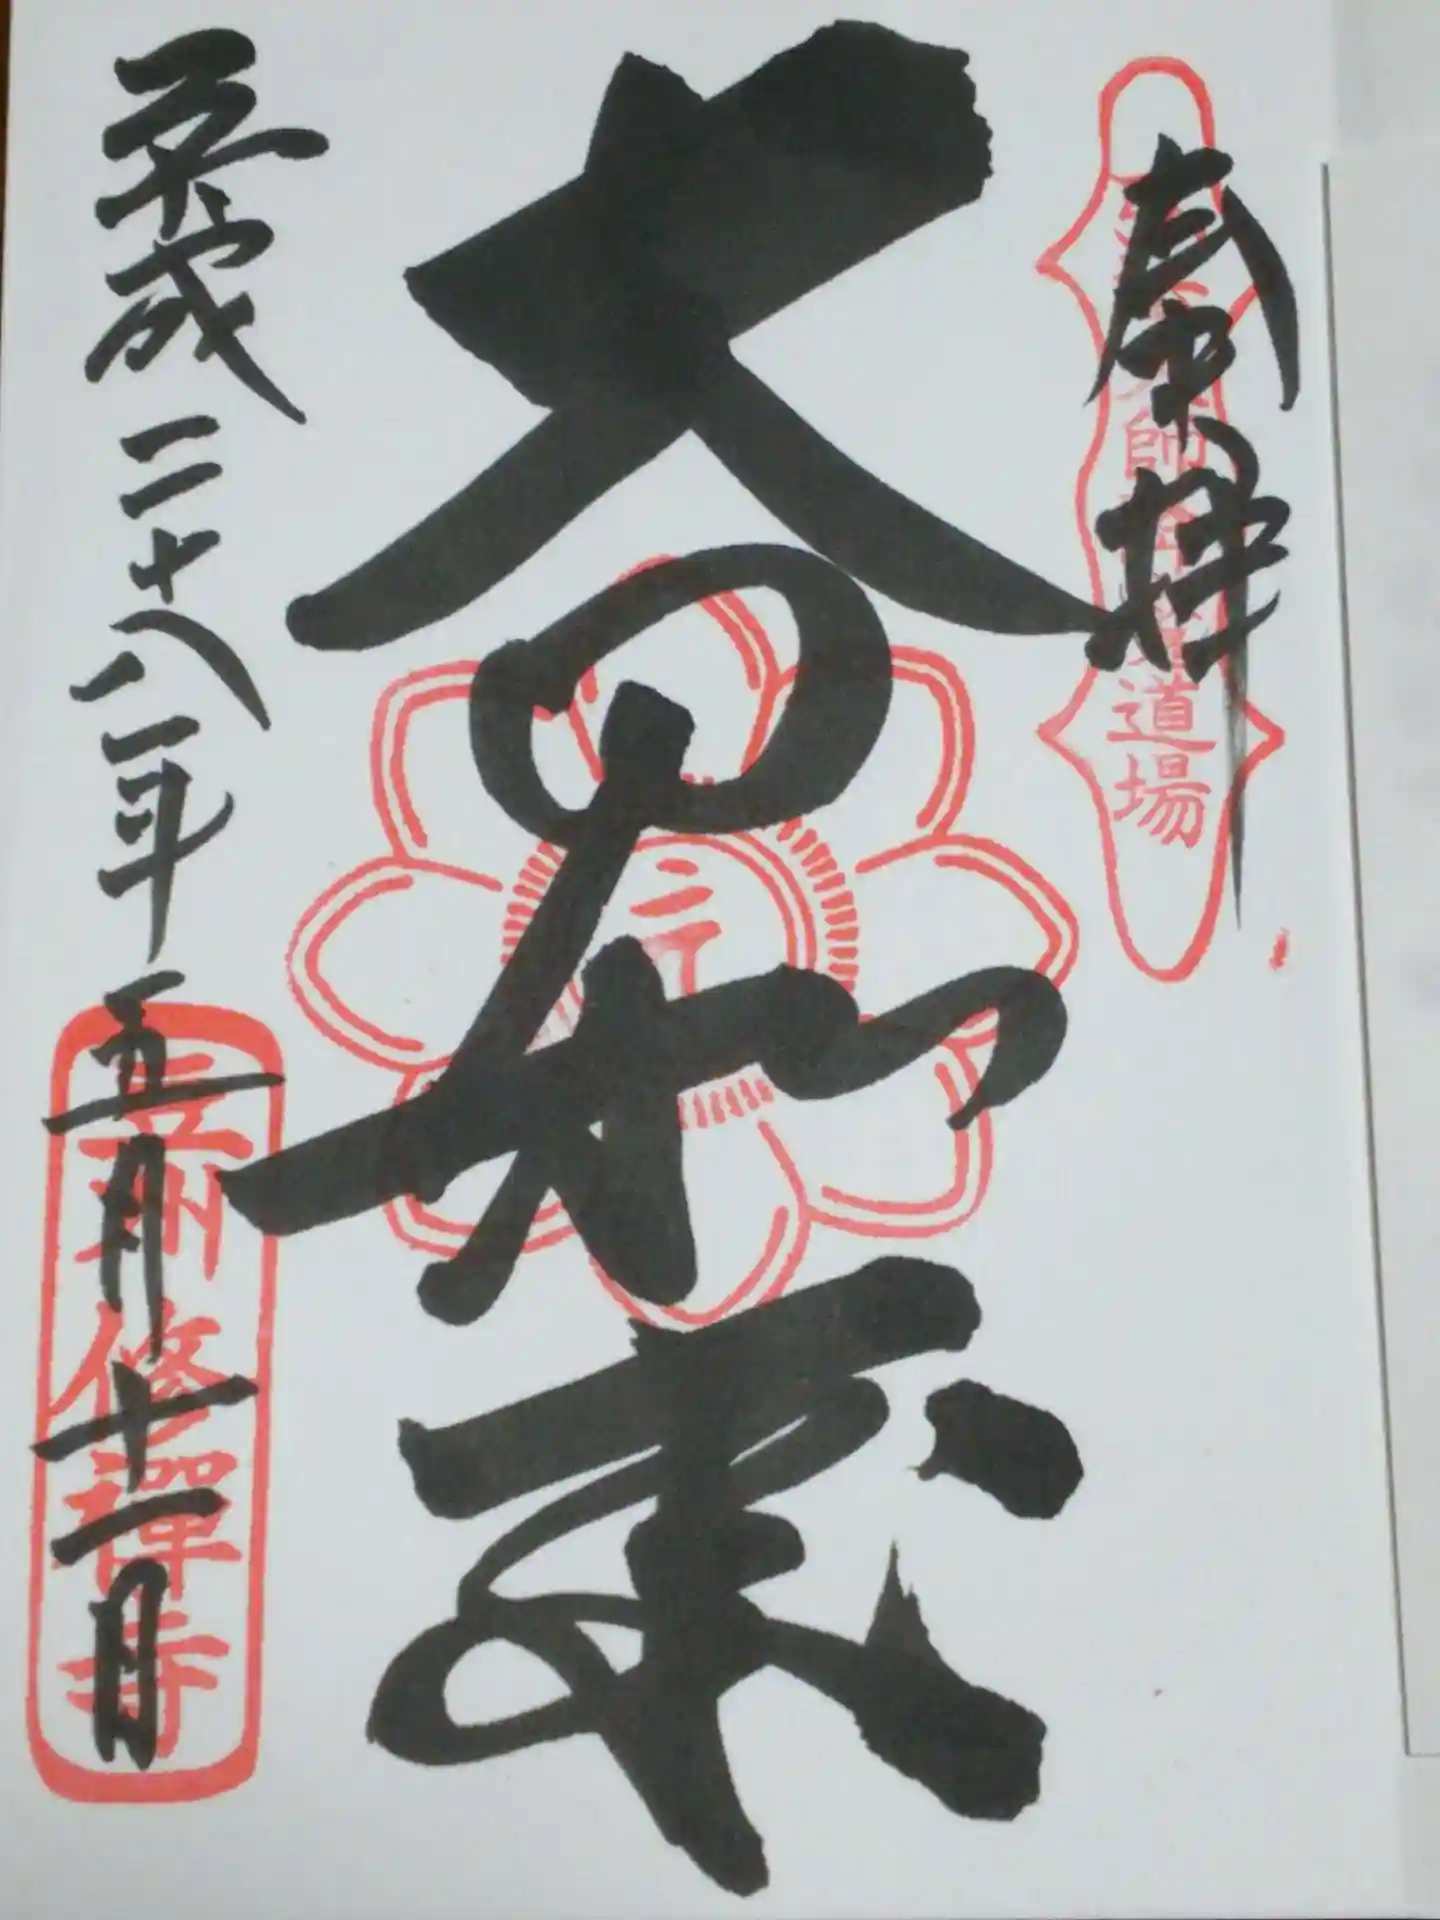 奉拝
大日如来
平成二十八年五月十一日
師
道場
豆州修禅寺